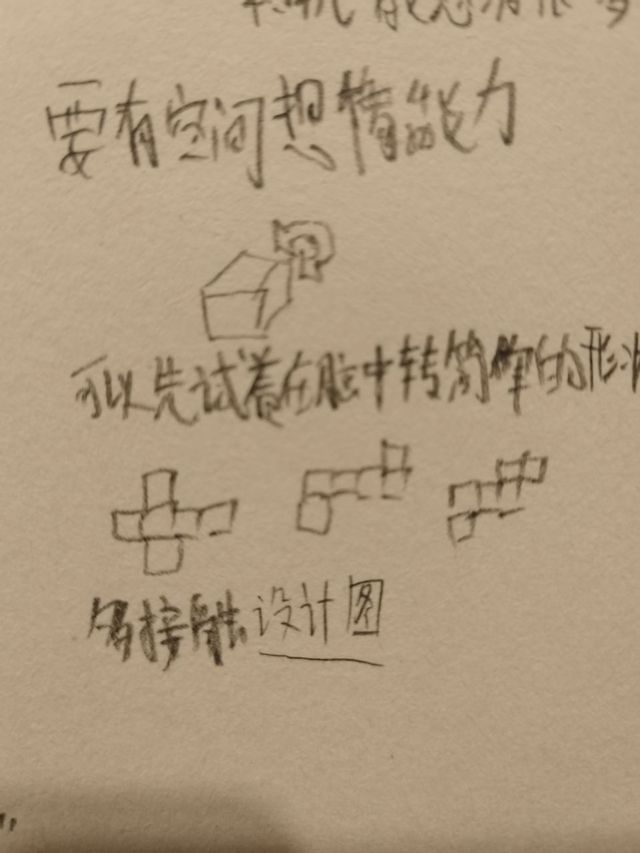 要有空间想像能力
可以先试着在脑中转简单的形状
多接触设计图